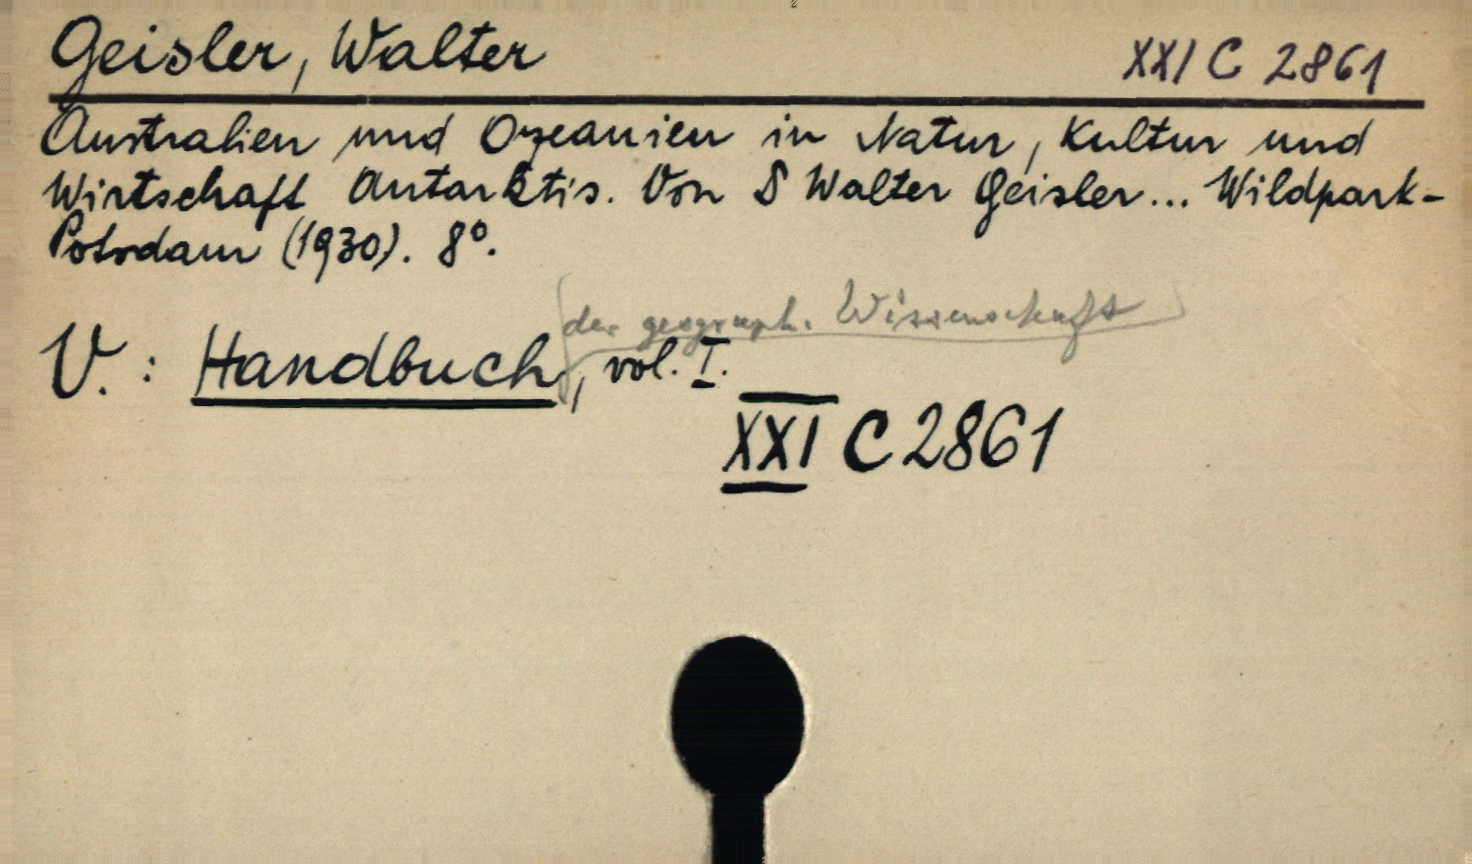 Geisler, Walter XXI C 2861
Australien und Ozeanien in Natur, Kultur und
Wirtschaft Antarktis. Von D Walter Geisler... Wildpark-
Potsdam (1930). 8º.
der geograph. Wissenschaft
V.: Handbuch, vol. I.
XXI C 2861